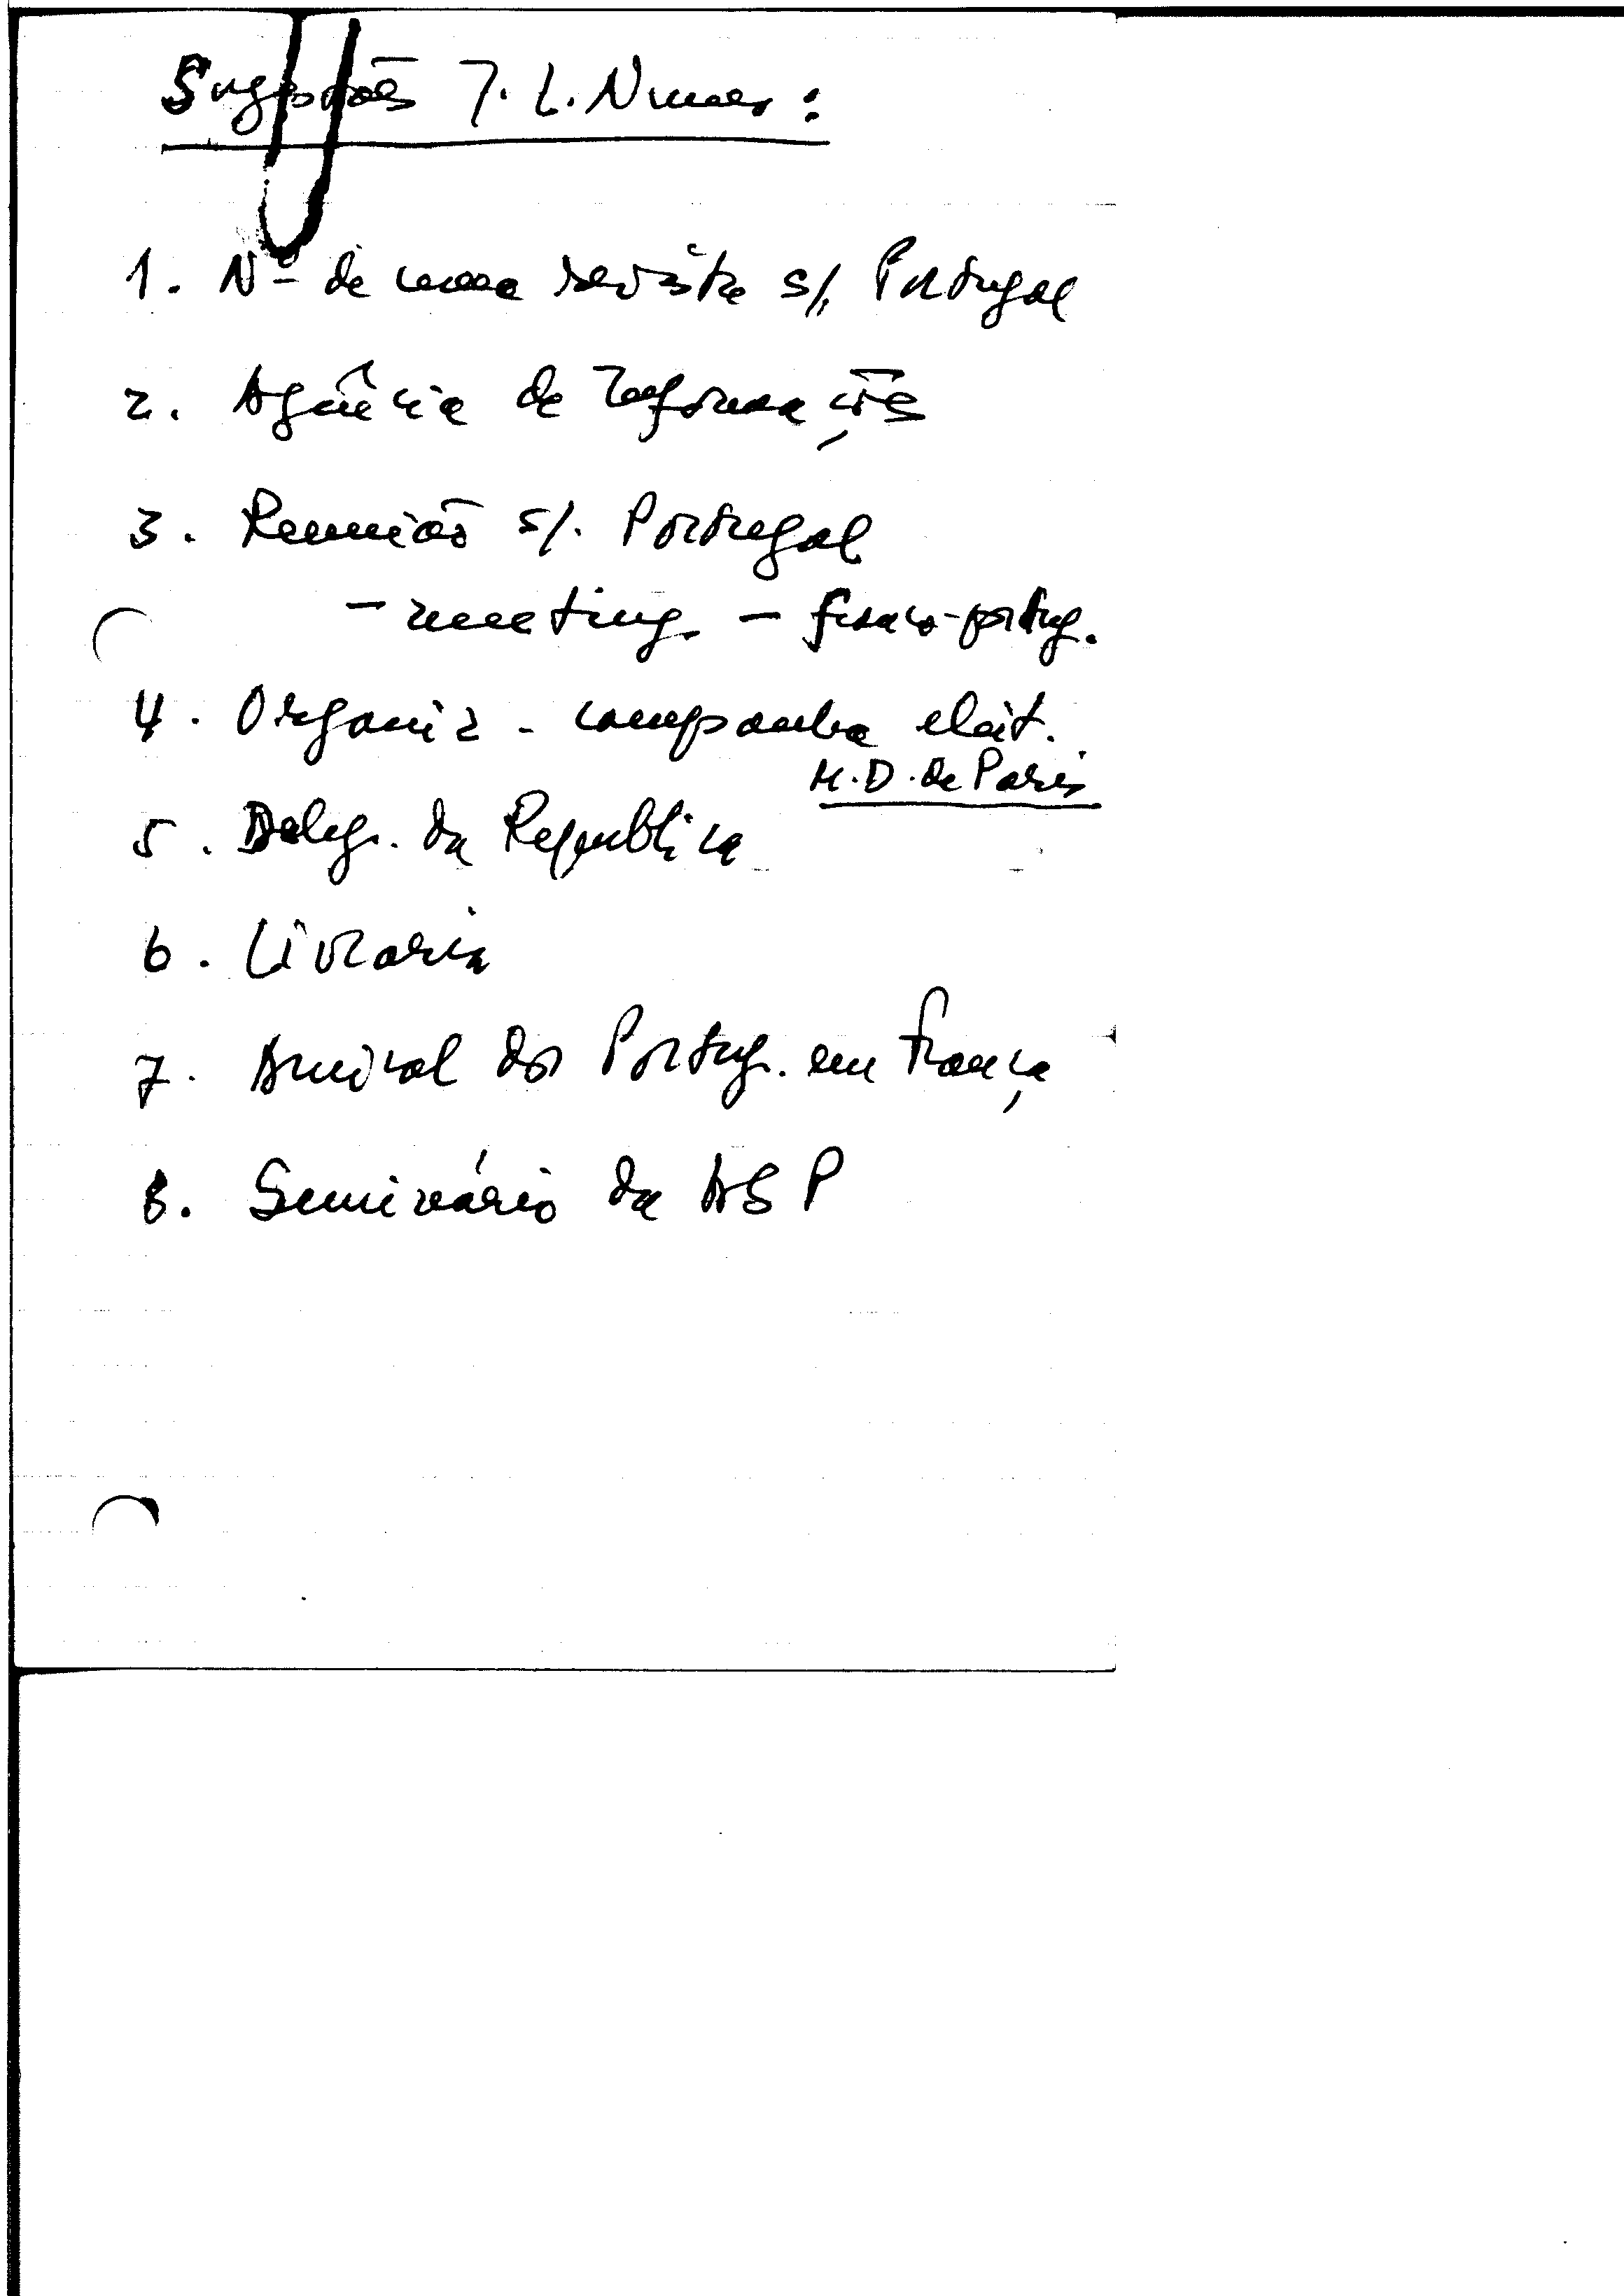 Sugestões J. L. Nunes:
1. Nº de uma revista s/. Portugal
2. Agência de Informações
3. Reunião s/. Portugal
- meeting - franco-portug.
4. Organiz - campanha eleit.
M.D. de Paris
5. Deleg. da Republica
6. Livraria
7. Amical dos Portug. em França
8. Seminário da ASP